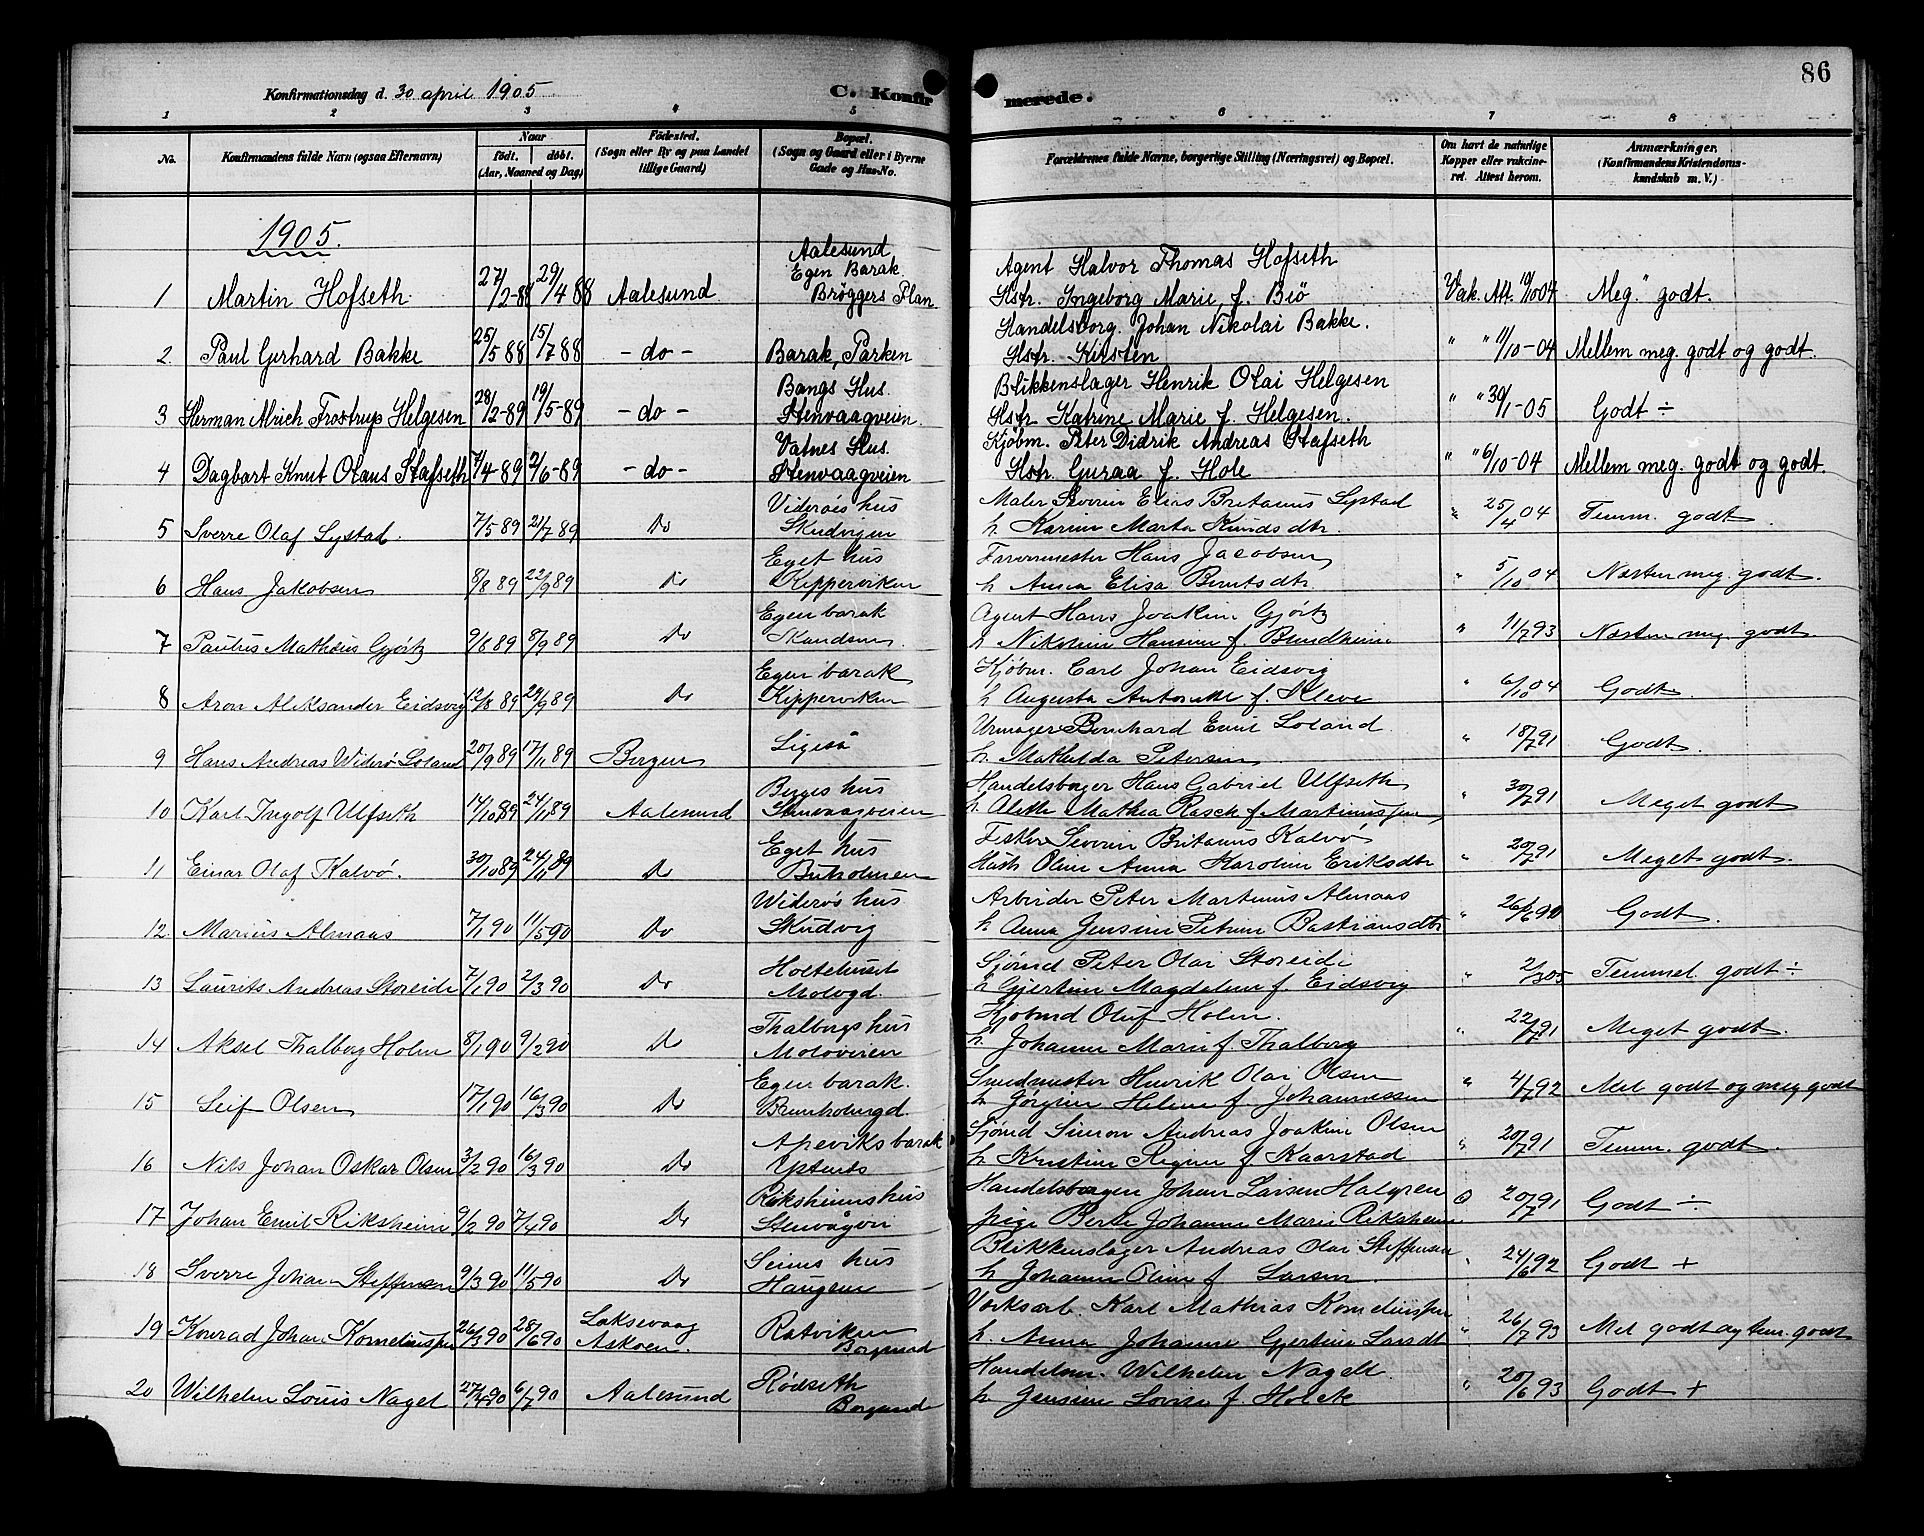 86
Konfirmationsdag d. 30 april 1905
C. Konfirmerede.
1 2 3 4 5 6 7 8
No. Konfirmandens fulde Navn (ogsaa Efternavn) Naar födt. döbt. (Aar, Maaned og Dag) Födested. (Sogn eller By og paa Landet tillige Gaard) Bopæl. (Sogn og Gaard eller i Byerne Gade og Hus-No. Forældrenes fulde Navne, borgerlige Stilling (Næringsvei) og Bopæl. Om havt de naturlige Kopper eller vakcineret. Attest herom. Anmærkninger. (Konfirmandens Kristendomskundskab m. V.)
1905.
Aalesund
Egen Barak Agent Halvor Thomas Hofseth
1 Martin Hofseth 27/2-88 29/4 88 Aalesund Brøggers Plan Hstr. Ingeborg Marie f. Biö Vak. Att. 19/10 04 Meg. godt.
Handelsborg. Johan Nikolai Bakke.
2. Paul Gerhard Bakke 25/5 88 15/7 88 - do - Barak, Parken Hstr. Kirsten " " 11/10-04 Mellem meg. godt og godt.
Bangs Hus. Blikkenslager Henrik Olai Helgesen
3 Herman Alrich Frostrup Helgesen 28/2-89 19/5-89 - do - Stenvaagveien. Hstr. Katrine Marie f. Helgesen. " " 30/1-05 Godt ÷
Vatnes Hus. Kjøbm. Peter Didrik Andreas Stafseth
4 Dagbart Knut Olaus Stafseth 7/4-89 2/6-89 - do - Stenvaagveien Hstr. Guraa f. Hole " " 6/10-04 Mellem meg. godt og godt.
Viderøs hus Maler Severin Elias Britanus Systad
5 Sverre Olaf Systad. 7/5 89 21/7 89 Do Skudvigen h Karen Marta Knudsdtr " 25/4 04 Temm. godt
Eget hus Farvermester Hans Jacobsen
6 Hans Jakobsen 8/8 89 22/9 89 Do Kipperviken h Anna Elisa Berntsdtr " 5/10 04 Næsten meg. godt.
Egen barak Agent Hans Joakim Gjörtz
7 Paulus Mathæus Gjörtz 9/8 89 8/9 89 Do Skandsen h Nikoline Hansine f. Brundheim " 11/7 93 Næsten meg. godt
Egen barak Kjöbm. Carl Johan Eidsvig
8 Aron Aleksander Eidsvig 12/8 89 29/9 89 Do Kipperviken h Augusta Antonette f. Kleve " 6/10 04 Godt.
Urmager Bernhard Emil Loland
9 Hans Andreas Widerø Loland 20/9 89 17/11 89 Bergen Ligeså h. Mathilda Petersen " 18/7 91 Godt.
Berges hus Handelsborger Hans Gabriel Ulfseth
10 Karl Ingolf Ulfseth 14/10 89 24/11 89 Aalesund Stenvaagveien h. Alette Mathea Rasch f. Martinussen " 30/7 91 Meget godt
Eget hus Fisker Severin Britanus Kalvø
11 Einar Olaf Kalvø. 30/10 89 24/11 89 Do Buholmen Hust. Oline Anna Karoline Eriksdtr " 20/7 91 Meget godt.
Widerøs hus Arbeider Peter Martinus Almaas
12. Marius Almaas 7/1 90 11/5 90 Do Skudvig h Anna Jensine Petrine Bastiansdtr " 26/6 90 Godt.
Holtehuset Sjömd Peter Olai Storeide
13 Laurits Andreas Storeide 7/1 90 2/3 90 Do Molovgd. h Gjertine Magdalene f. Eidsvig " 2/3 05 Temmel. godt ÷
Thalbergs hus Kjöbmd Oluf Holm.
14 Aksel Thalberg Holm 8/1 90 9/2 90 Do Moloveien h Johanne Marie f. Thalberg " 22/7 91 Meget godt.
Egen barak. Smedmester Henrik Olai Olsen
15 Leif Olsen 17/1 90 16/3 90 Do Brunholmgd. h Jörgine Helene f. Johannessen " 4/7 92 Mel godt og meg godt
Apeviks barak Sjömd Simon Andreas Joakim Olsen
16 Nils Johan Oskar Olsen 3/2 90 16/3 90 Do Ystenes h Kristine Regine f. Kaarstad " 20/7 91 Temm. godt
Riksheims hus Handelsborgen Johan Larsen Halgren
17 Johan Emil Riksheim 9/2 90 7/4 90 Do Stenvågvn pige Berte Johanne Marie Riksheim 0 20/7 91 Godt ÷
Seines hus Blikkenslager Andreas Olai Steffensen
18 Sverre Johan Steffensen 9/3 90 11/5 90 Do Haugen h Johanne Oline f. Larsen " 24/6 92 Godt +
Laksevaag Verksarb. Karl Mathias Korneliussen
19 Konrad Johan Korneliussen 26/3 90 28/6 90 Askøen. Ratviken Borgund h. Anna Johanne Gjertine Larsdt " 26/7 93 Mel godt og tem. godt
Rødseth Handelsm. Wilhelm Nagelt
20 Wilhelm Louis Nagel 27/4 90 6/7 90 Aalesund Borgund h Jensine Lovise f. Holck " 20/6 93 Godt +